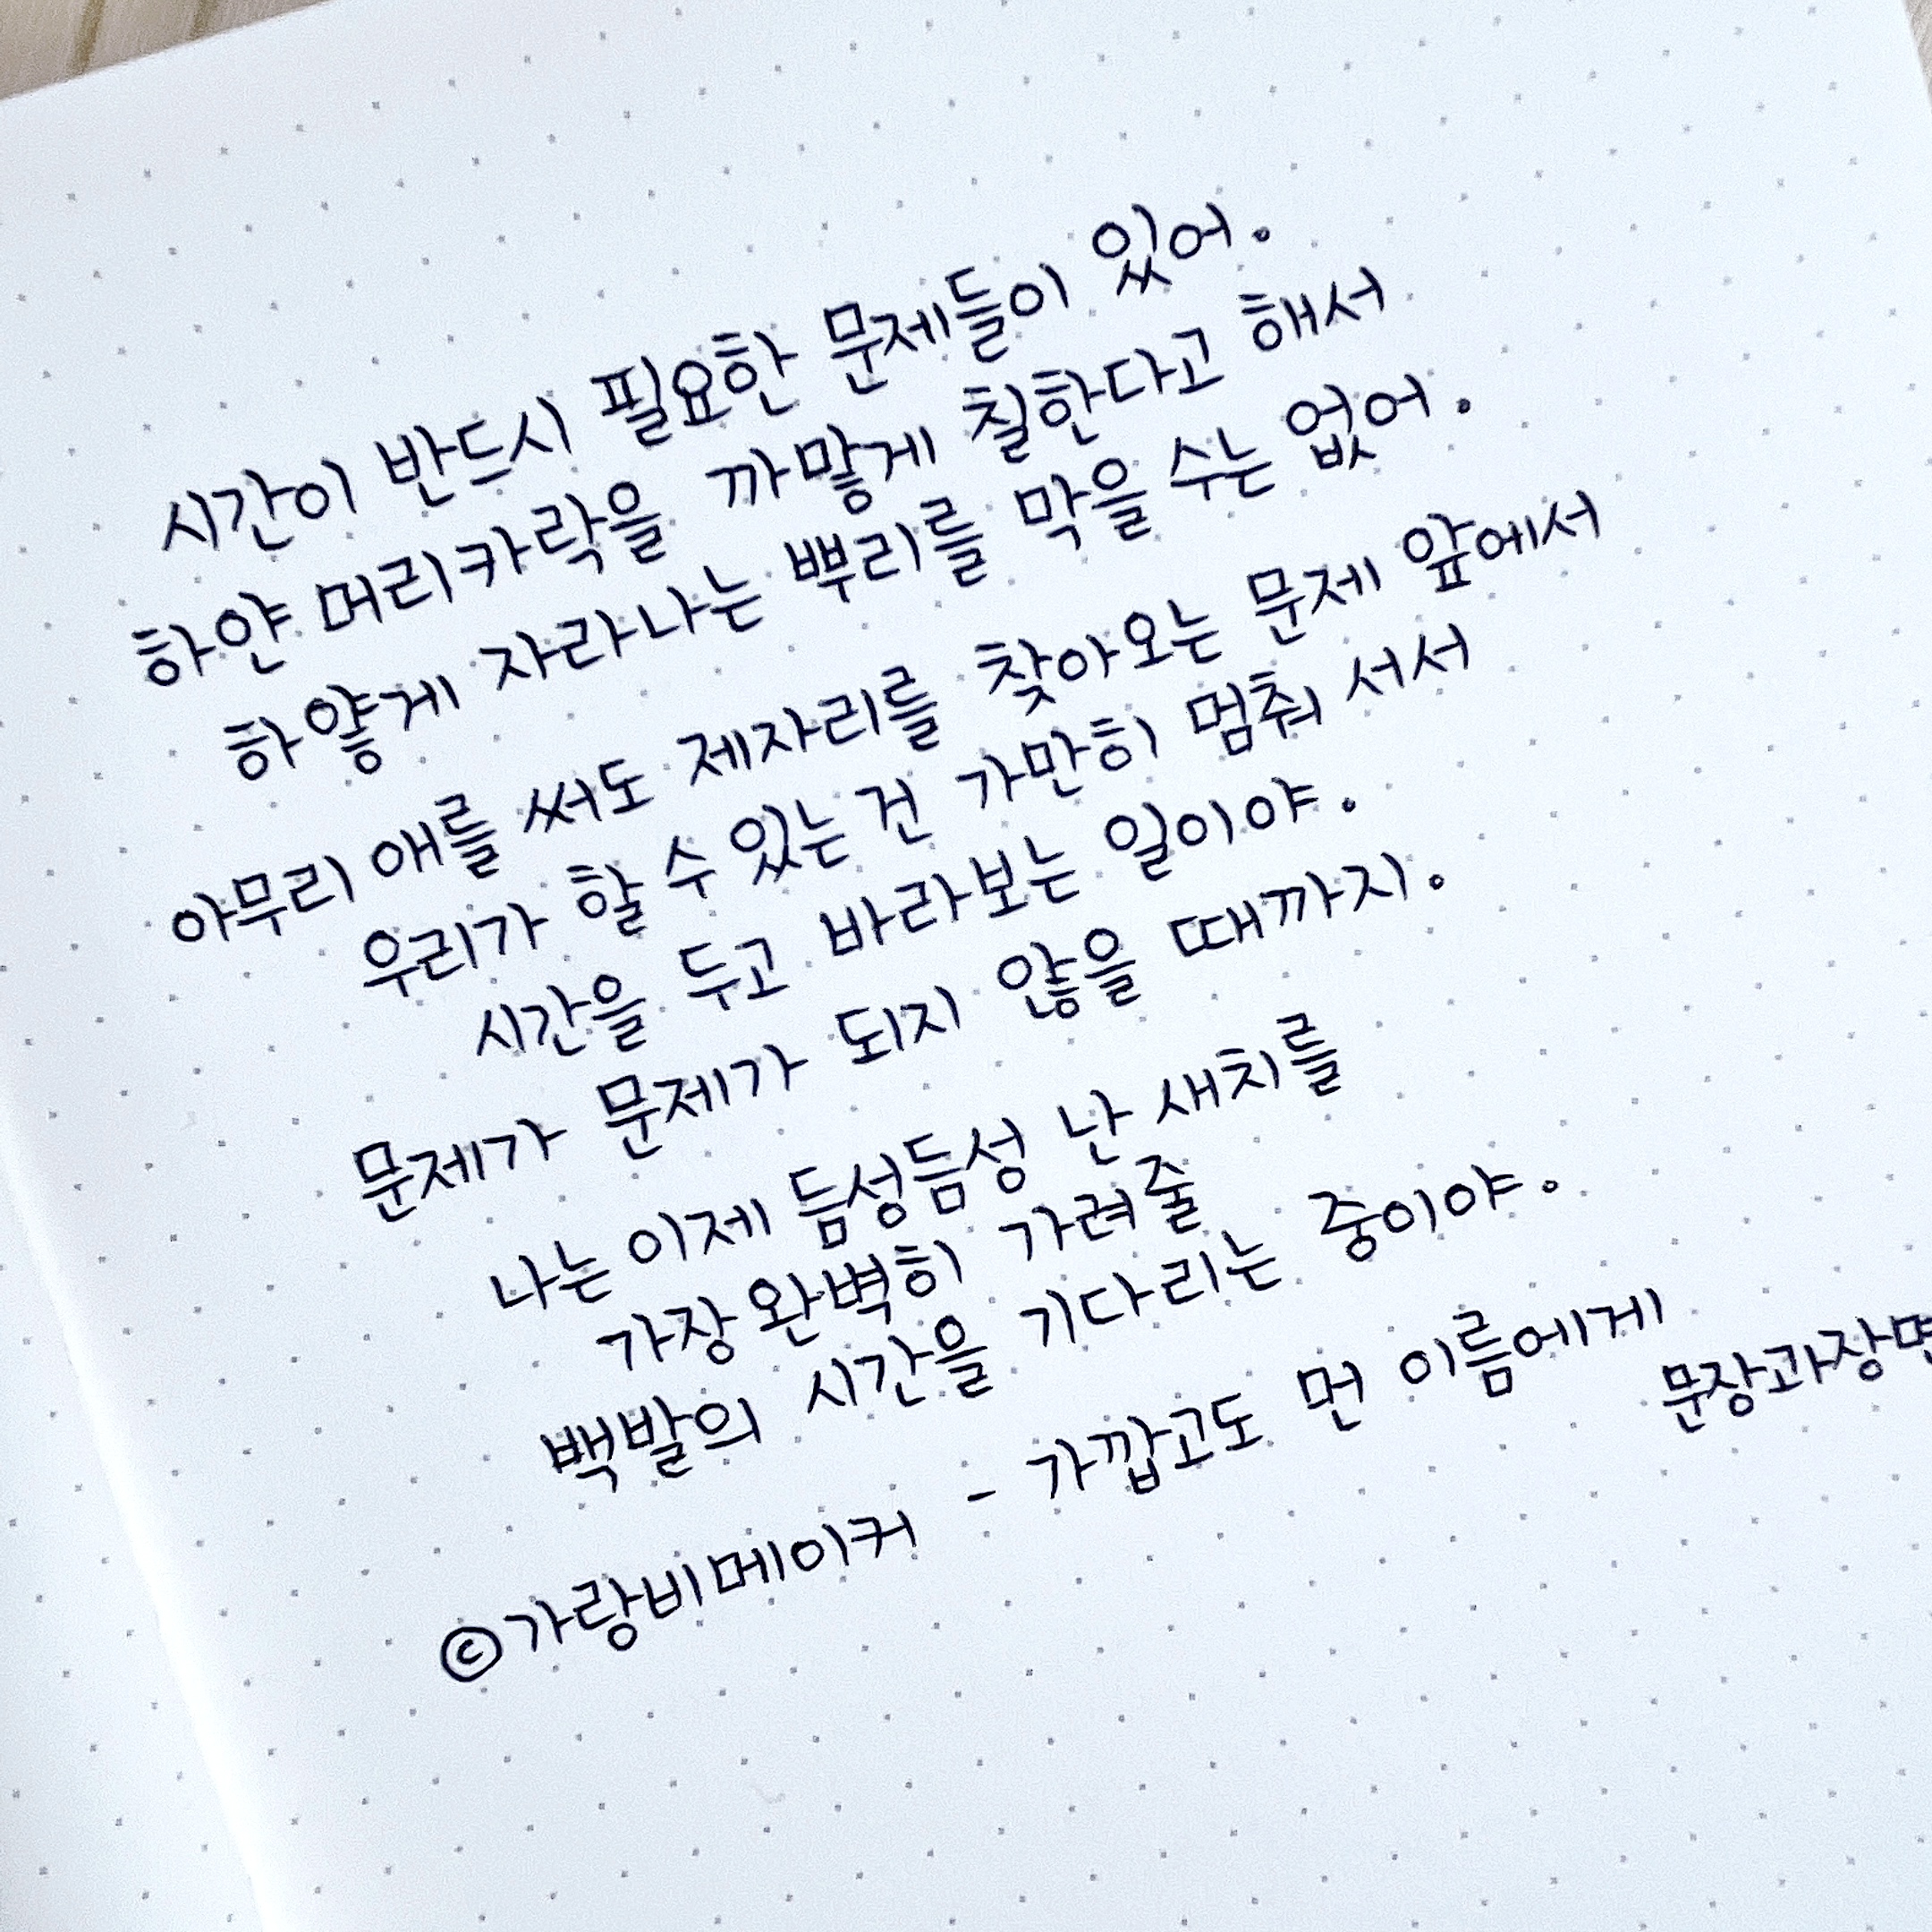 시간이 반드시 필요한 문제들이 있어.
하얀 머리카락을 까맣게 칠한다고 해서
하얗게 자라나는 뿌리를 막을 수는 없어.
아무리 애를 써도 제자리를 찾아오는 문제 앞에서
우리가 할 수 있는 건 가만히 멈춰 서서
시간을 두고 바라보는 일이야.
문제가 문제가 되지 않을 때까지.
나는 이제 듬성듬성 난 새치를
가장 완벽히 가려줄
백발의 시간을 기다리는 중이야.
©가랑비메이커 - 가깝고도 먼 이름에게
문장과장면